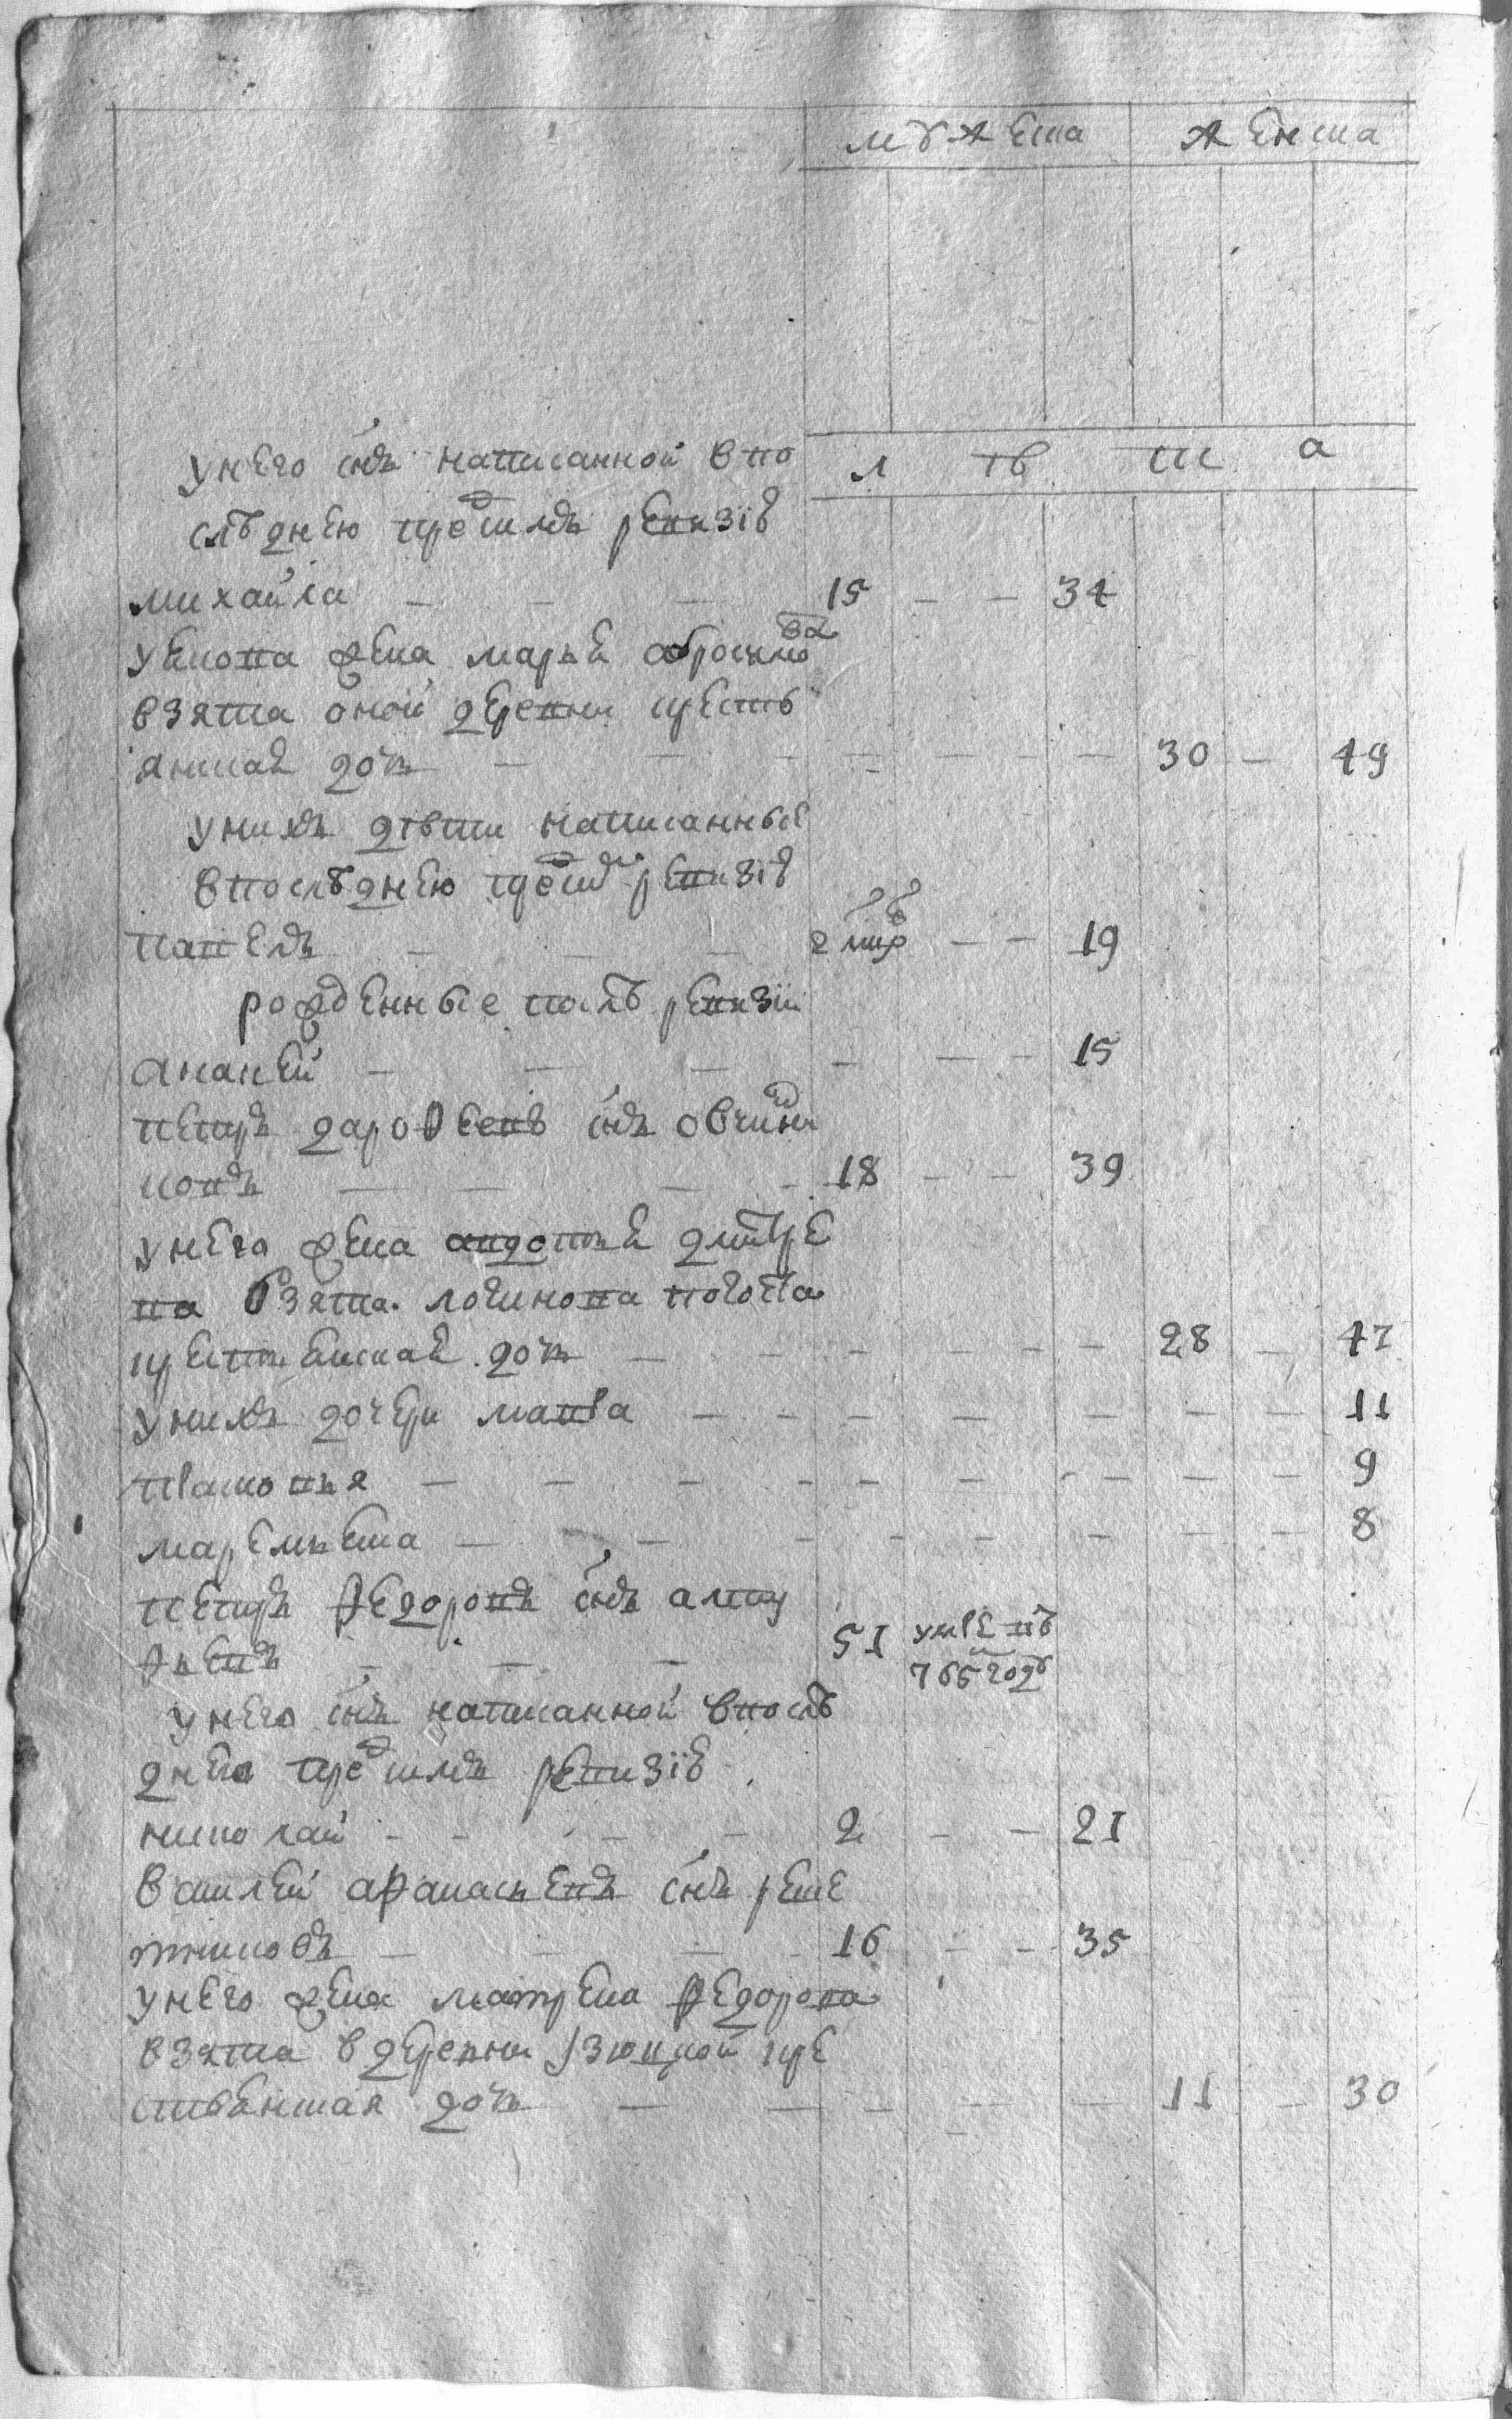 мужеска женска
унего снъ написанной впо
лѣта
слѣднею предъ симъ ревизiю
михаила — — — 15 — — 34
унево жена марья абросимова
взята оной деревни кресть
янская дочь — — — 30 — 49
унихъ дѣти написанные
впослѣднею предъ симъ ревизiю
павелъ — — — — — 19
рожденные послѣ ревизiи
ананей — — — — — 15
петръ дарофеевъ снъ овчини
ковъ — — — 18 — — 39
унего жена авдотья дмитре
ва взята логинова погоста
крестьянская дочь — — — 28 — 47
унихъ дочери мавра — — — 11
соломонья — — — 9
маремьена — — — 8
петръ федоровъ снъ алту
фьевъ — — — 51 умре въ
765 году
унего снъ написанной впослѣ
днею предъ симъ ревизiю
николай — — — 2 — — 21
василей афанасьевъ снъ реше
тниковъ — — — 16 — — 35
унего жена матрена федорова
взята вдеревни кре
стьянская дочь — — — 11 — 30